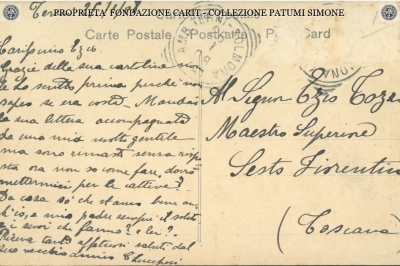 PROPRIETÀ FONDAZIONE CARIT - COLLEZIONE PATUMI SIMONE
Cartolina Postale
Carte Postale Postkarte Post Card
Carissimo Ezio
Grazie della sua cartolina non
le ho scritto prima perchè non
sapevo se era costà. Mandai
la sua lettera accompagnata
da una mia molto gentile
ma sono rimasto senza rispo
sta ora non so come fare, dovrò
mettermici per le cattive?
Da casa so che stanno bene
e mio padre sempre il solito
e i suoi che fanno? e lei?
Riceva tanti affettuosi saluti dal
suo vecchio amico
Al Signor Ezio
Maestro Superiore
Sesto Fiorentino
(Toscana)